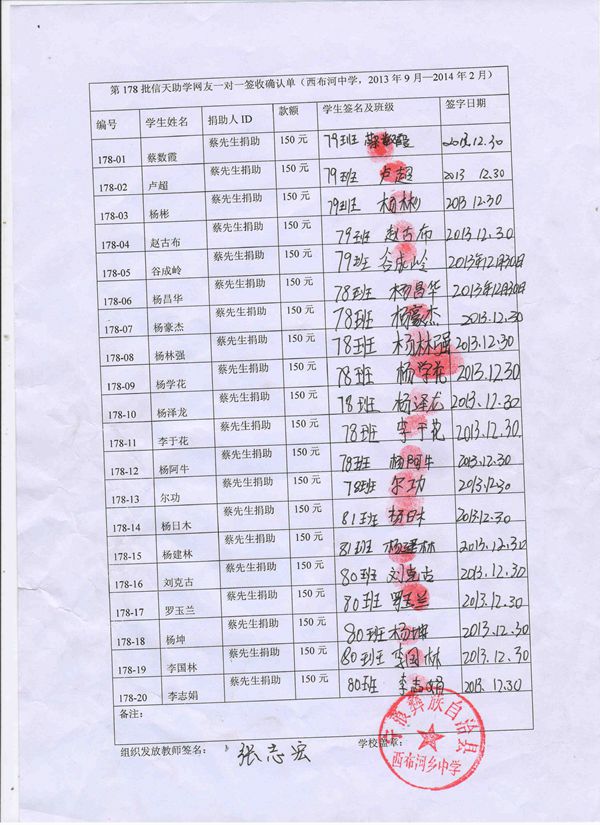 第 178 批信天助学网友一对一签收确认单（西布河中学，2013 年 9 月—2014 年 2 月）
编号 学生姓名 捐助人 ID 款额 学生签名及班级 签字日期
178-01 蔡数霞 蔡先生捐助 150 元 79班 蔡数霞 2013.12.30
178-02 卢超 蔡先生捐助 150 元 79班 卢超 2013 12.30
178-03 杨彬 蔡先生捐助 150 元 79班 杨彬 2013 12.30
178-04 赵古布 蔡先生捐助 150 元 79班 赵古布 2013.12.30
178-05 谷成岭 蔡先生捐助 150 元 79班 谷成岭 2013年12月30日
178-06 杨昌华 蔡先生捐助 150 元 78班 杨昌华 2013年12月30日
178-07 杨豪杰 蔡先生捐助 150 元 78班 杨豪杰 2013.12.30
178-08 杨林强 蔡先生捐助 150 元 78班 杨林强 2013.12.30
178-09 杨学花 蔡先生捐助 150 元 78班 杨学花 2013.12.30
178-10 杨泽龙 蔡先生捐助 150 元 78班 杨泽龙 2013.12.30
178-11 李于花 蔡先生捐助 150 元 78班 李于花 2013.12.30
178-12 杨阿牛 蔡先生捐助 150 元 78班 杨阿牛 2013.12.30
178-13 尔功 蔡先生捐助 150 元 78班 尔功 2013.12.30
178-14 杨日木 蔡先生捐助 150 元 81班 杨日木 2013.12.30
178-15 杨建林 蔡先生捐助 150 元 81班 杨建林 2013.12.30
178-16 刘克古 蔡先生捐助 150 元 80班 刘克古 2013.12.30
178-17 罗玉兰 蔡先生捐助 150 元 80班 罗玉兰 2013.12.30
178-18 杨坤 蔡先生捐助 150 元 80班 杨坤 2013.12.30
178-19 李国林 蔡先生捐助 150 元 80班 李国林 2013.12.30
178-20 李志娟 蔡先生捐助 150 元 80班 李志娟 2013.12.30
备注：
组织发放教师签名： 张志宏 学校盖章：
宁蒗彝族自治县
西布河乡中学